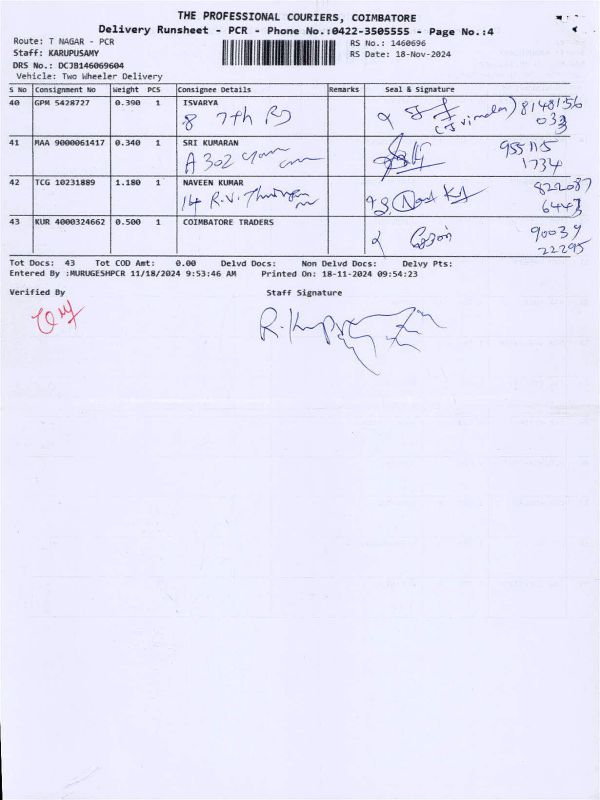 THE PROFESSIONAL COURIERS, COIMBATORE
Delivery Runsheet - PCR - Phone No.:0422-3505555 - Page No.:4
Route: T NAGAR - PCR
RS No.: 1460696
Staff: KARUPUSAMY
RS Date: 18-Nov-2024
DRS No.: DCJB146069604
Vehicle: Two Wheeler Delivery
S No Consignment No Weight PCS Consignee Details Remarks Seal & Signature
40 GPM 5428727 0.390 1 ISVARYA
8 7th 8148156
033
41 MAA 9000061417 0.340 1 SRI KUMARAN
A 302 955115
1734
42 TCG 10231889 1.180 1 NAVEEN KUMAR
14 R.V. 822087
6443
43 KUR 4000324662 0.500 1 COIMBATORE TRADERS
90039
22295
Tot Docs: 43 Tot COD Amt: 0.00 Delvd Docs: Non Delvd Docs: Delvy Pts:
Entered By :MURUGESHPCR 11/18/2024 9:53:46 AM Printed On: 18-11-2024 09:54:23
Verified By Staff Signature